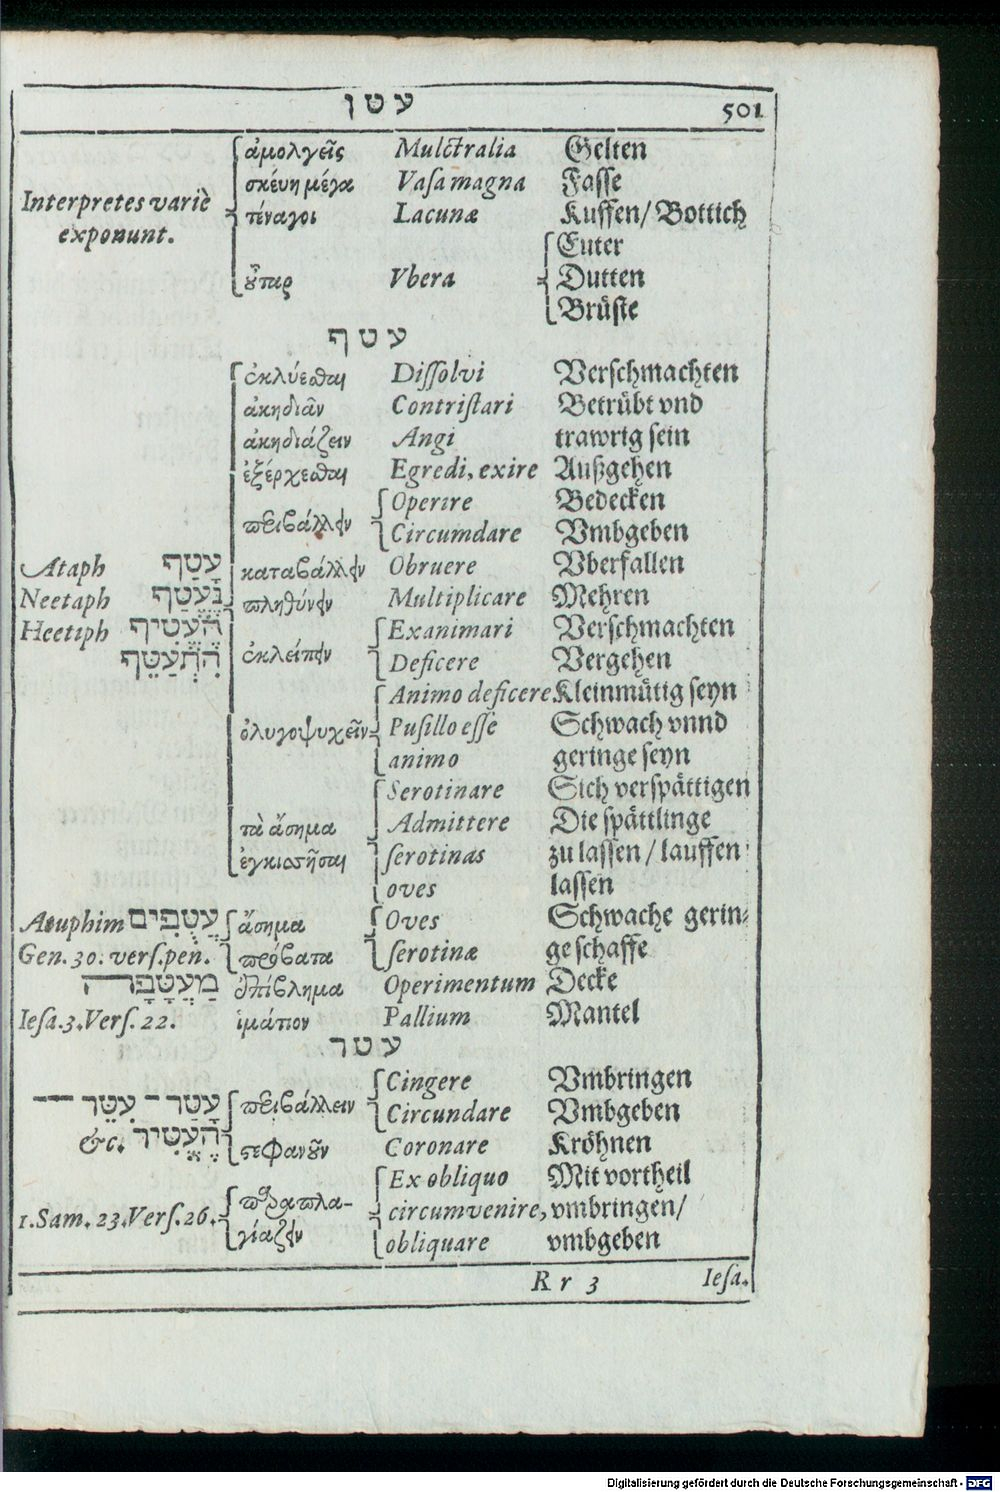 עטן 501
ἀμολγεῖς Mulctralia Gelten
σκέυη μέγα Vasa magna Fasse
Interpretes variè
τέναγοι Lacunæ Kuffen/ Bottich
exponunt.
Euter
οὖθαρ Vbera Dutten
Brüste
עטף
ἐκλύεσθαι Dissolvi Verschmachten
ἀκηδιᾶν Contristari Betrübt vnd
ἀκηδιάζειν Angi trawrig sein
ἐξέρχεσθαι Egredi, exire Außgehen
Operire Bedecken
περιβάλλειν
Circumdare Vmbgeben
Ataph עָטַף καταβάλλειν Obruere Vberfallen
Neetaph נֶּעֱטַף πληθύνειν Multiplicare Mehren
Heetiph הֶעֱטִיף Exanimari Verschmachten
הִתְעַטֵּף ἐκλείπειν Deficere Vergehen
Animo deficere Kleinmütig seyn
ὀλυγοψυχεῖν Pusillo esse Schwach vnnd
animo geringe seyn
Serotinare Sich verspättigen
τὰ ἄσημα Admittere Die spättlinge
serotinas zu lassen / lauffen
oves lassen
Atuphim עֲטֻפִים ἄσημα Oves Schwache gerin-
Gen. 30. vers. pen. πρόβατα serotinæ ge schaffe
ἐπίβλημα Operimentum Decke
Iesa. 3. Vers. 22. ἱμάτιον Pallium Mantel
עטר
Cingere Vmbringen
עָטַר - עִטֵּר -- περιβάλλειν Circundare Vmbgeben
&c. הֶעֱטִיר στεφανοῦν Coronare Kröhnen
Ex obliquo Mit vortheil
1. Sam. 23. Vers. 26. παραπλα- circumvenire, vmbringen/
γιάζειν obliquare vmbgeben
R r 3 Iesa.
Digitalisierung gefördert durch die Deutsche Forschungsgemeinschaft - DFG